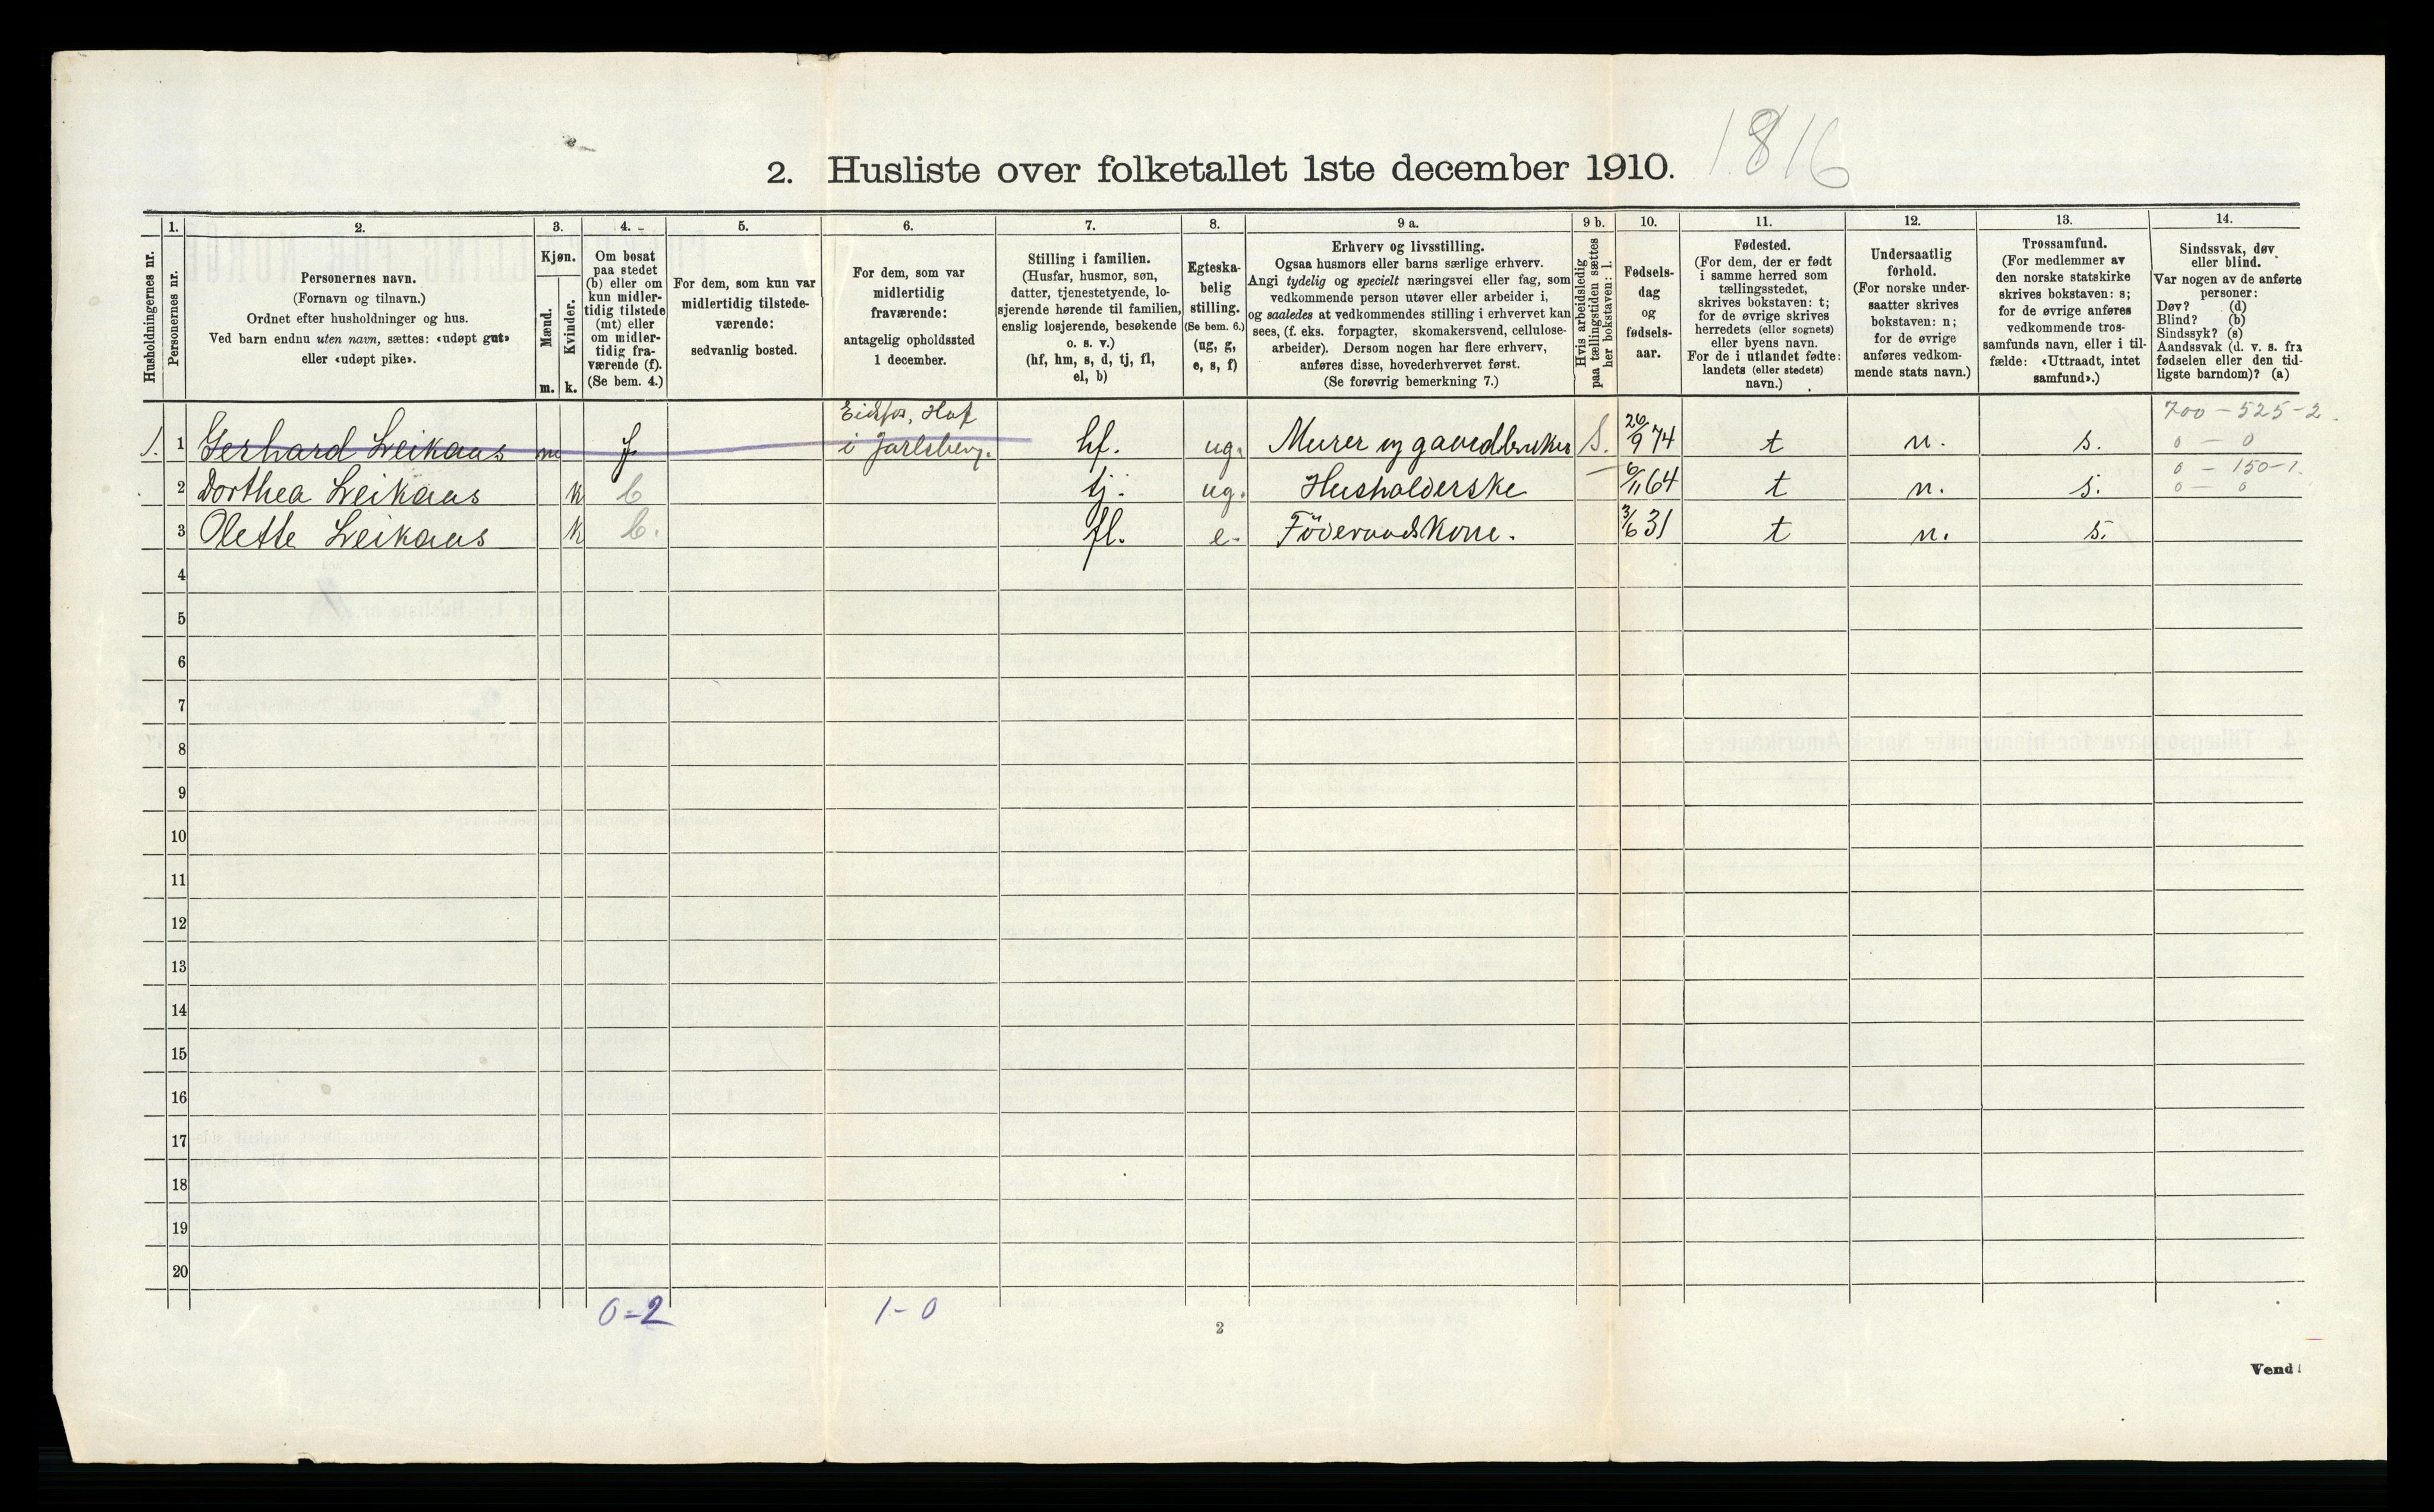 1816
2. Husliste over folketallet 1ste december 1910.
Husholdningernes nr.
1.
Personernes nr.
2.
Personernes navn.
(Fornavn og tilnavn.)
Ordnet efter husholdninger og hus.
Ved barn endnu uten navn, sættes: «udøpt gut»
eller «udøpt pike».
3.
Kjøn.
Mænd.
Kvinder.
m. k.
4.
Om bosat
paa stedet
(b) eller om
kun midler-
tidig tilstede
(mt) eller
om midler-
tidig fra-
værende (f).
(Se bem. 4.)
5.
For dem, som kun var
midlertidig tilstede-
værende:
sedvanlig bosted.
6.
For dem, som var
midlertidig
fraværende:
antagelig opholdssted
1 december.
7.
Stilling i familien.
(Husfar, husmor, søn,
datter, tjenestetyende, lo-
sjerende hørende til familien,
enslig losjerende, besøkende
o. s. v.)
(hf, hm, s, d, tj, fl,
el, b)
8.
Egteska-
belig
stilling.
(Se bem. 6.)
(ug, g,
e, s, f)
9 a.
Erhverv og livsstilling.
Ogsaa husmors eller barns særlige erhverv.
Angi tydelig og specielt næringsvei eller fag, som
vedkommende person utøver eller arbeider i,
og saaledes at vedkommendes stilling i erhvervet kan
sees, (f. eks. forpagter, skomakersvend, cellulose-
arbeider). Dersom nogen har flere erhverv,
anføres disse, hovederhvervet først.
(Se forøvrig bemerkning 7.)
9 b.
Hvis arbeidsledig
paa tællingstiden sættes
her bokstaven: l.
10.
Fødsels-
dag
og
fødsels-
aar.
11.
Fødested.
(For dem, der er født
i samme herred som
tællingsstedet,
skrives bokstaven: t;
for de øvrige skrives
herredets (eller sognets)
eller byens navn.
For de i utlandet fødte:
landets (eller stedets)
navn.)
12.
Undersaatlig
forhold.
(For norske under-
saatter skrives
bokstaven: n;
for de øvrige
anføres vedkom-
mende stats navn.)
13.
Trossamfund.
(For medlemmer av
den norske statskirke
skrives bokstaven: s;
for de øvrige anføres
vedkommende tros-
samfunds navn, eller i til-
fælde: «Uttraadt, intet
samfund».)
14.
Sindssvak, døv
eller blind.
Var nogen av de anførte
personer:
Døv? (d)
Blind? (b)
Sindssyk? (s)
Aandssvak (d. v. s. fra
fødselen eller den tid-
ligste barndom)? (a)
1. 1 Gerhard Leikaas m f Eidsfos, Hof i Jarlsberg. hf. ug. Murer og gaardbruker S. 26/9 74 t n. s. 700-525-2. 0-0
2 Dorthea Leikaas k b tj. ug. Husholderske 6/11 64 t n. s. 0-150-1. 0-0
3 Olette Leikaas k b. fl. e. Föderaadskone. 3/6 31 t n. s.
4
5
6
7
8
9
10
11
12
13
14
15
16
17
18
19
20
0-2 1-0
2
Vend!